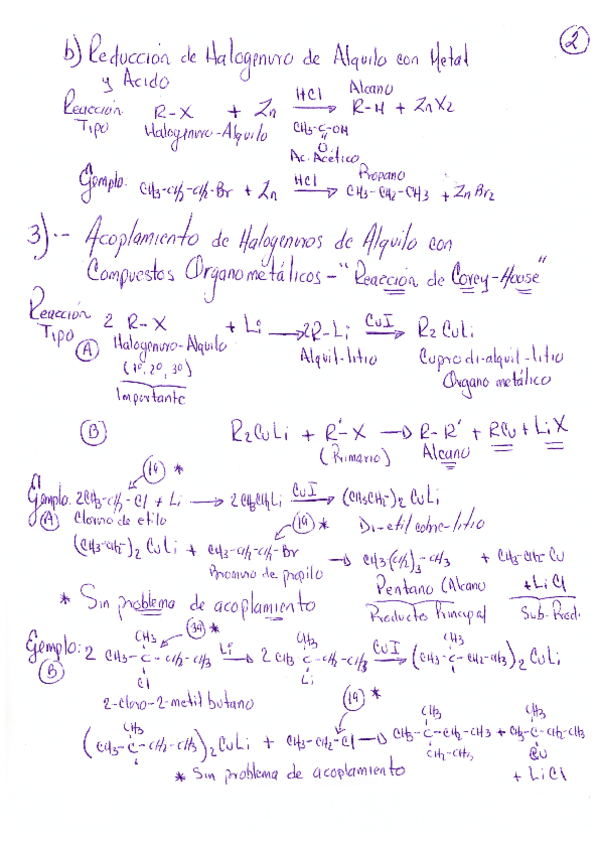 2
b) Reducción de Halogenuro de Alquilo con Metal
y Acido
Reacción Tipo R-X + Zn HCl → R-H + ZnX2
Halogenuro-Alquilo Alcano
CH3-C-OH
O
Ac. Acético
Ejemplo: CH3-CH2-CH2-Br + Zn HCl → CH3-CH2-CH3 + ZnBr2
Propano
3).- Acoplamiento de Halogenuros de Alquilo con
Compuestos Organometálicos - "Reacción de Corey-House"
Reacción Tipo 2 R-X + Li → 2R-Li CuI → R2CuLi
A Halogenuro-Alquilo Alquil-litio Cuprodi-alquil-litio
(1º, 2º, 3º) Organo metálico
Importante
B R2CuLi + R'-X → R-R' + RCu + LiX
(Primario) Alcano
(1º) *
Ejemplo: 2CH3-CH2-Cl + Li → 2CH3CH2Li CuI → (CH3CH2-)2 CuLi
A Cloruro de etilo (1º) * Di-etil cobre-litio
(CH3-CH2-)2 CuLi + CH3-CH2-CH2-Br → CH3-(CH2)3-CH3 + CH3-CH2-Cu
Bromuro de propilo Pentano (Alcano + LiCl
* Sin problema de acoplamiento Producto Principal Sub-Prod.
Ejemplo: 2 CH3-C-CH2-CH3 Li → 2 CH3 C-CH2-CH3 CuI → (CH3-C-CH2-CH3)2 CuLi
B CH3 (3º) * CH3 CH3
Cl Li
2-cloro-2-metil butano
(1º) *
CH3 CH3 CH3
(CH3-C-CH2-CH3)2 CuLi + CH3-CH2-Cl → CH3-C-CH2-CH3 + CH3-C-CH2-CH3
CH2-CH3 Cu
* Sin problema de acoplamiento + LiCl